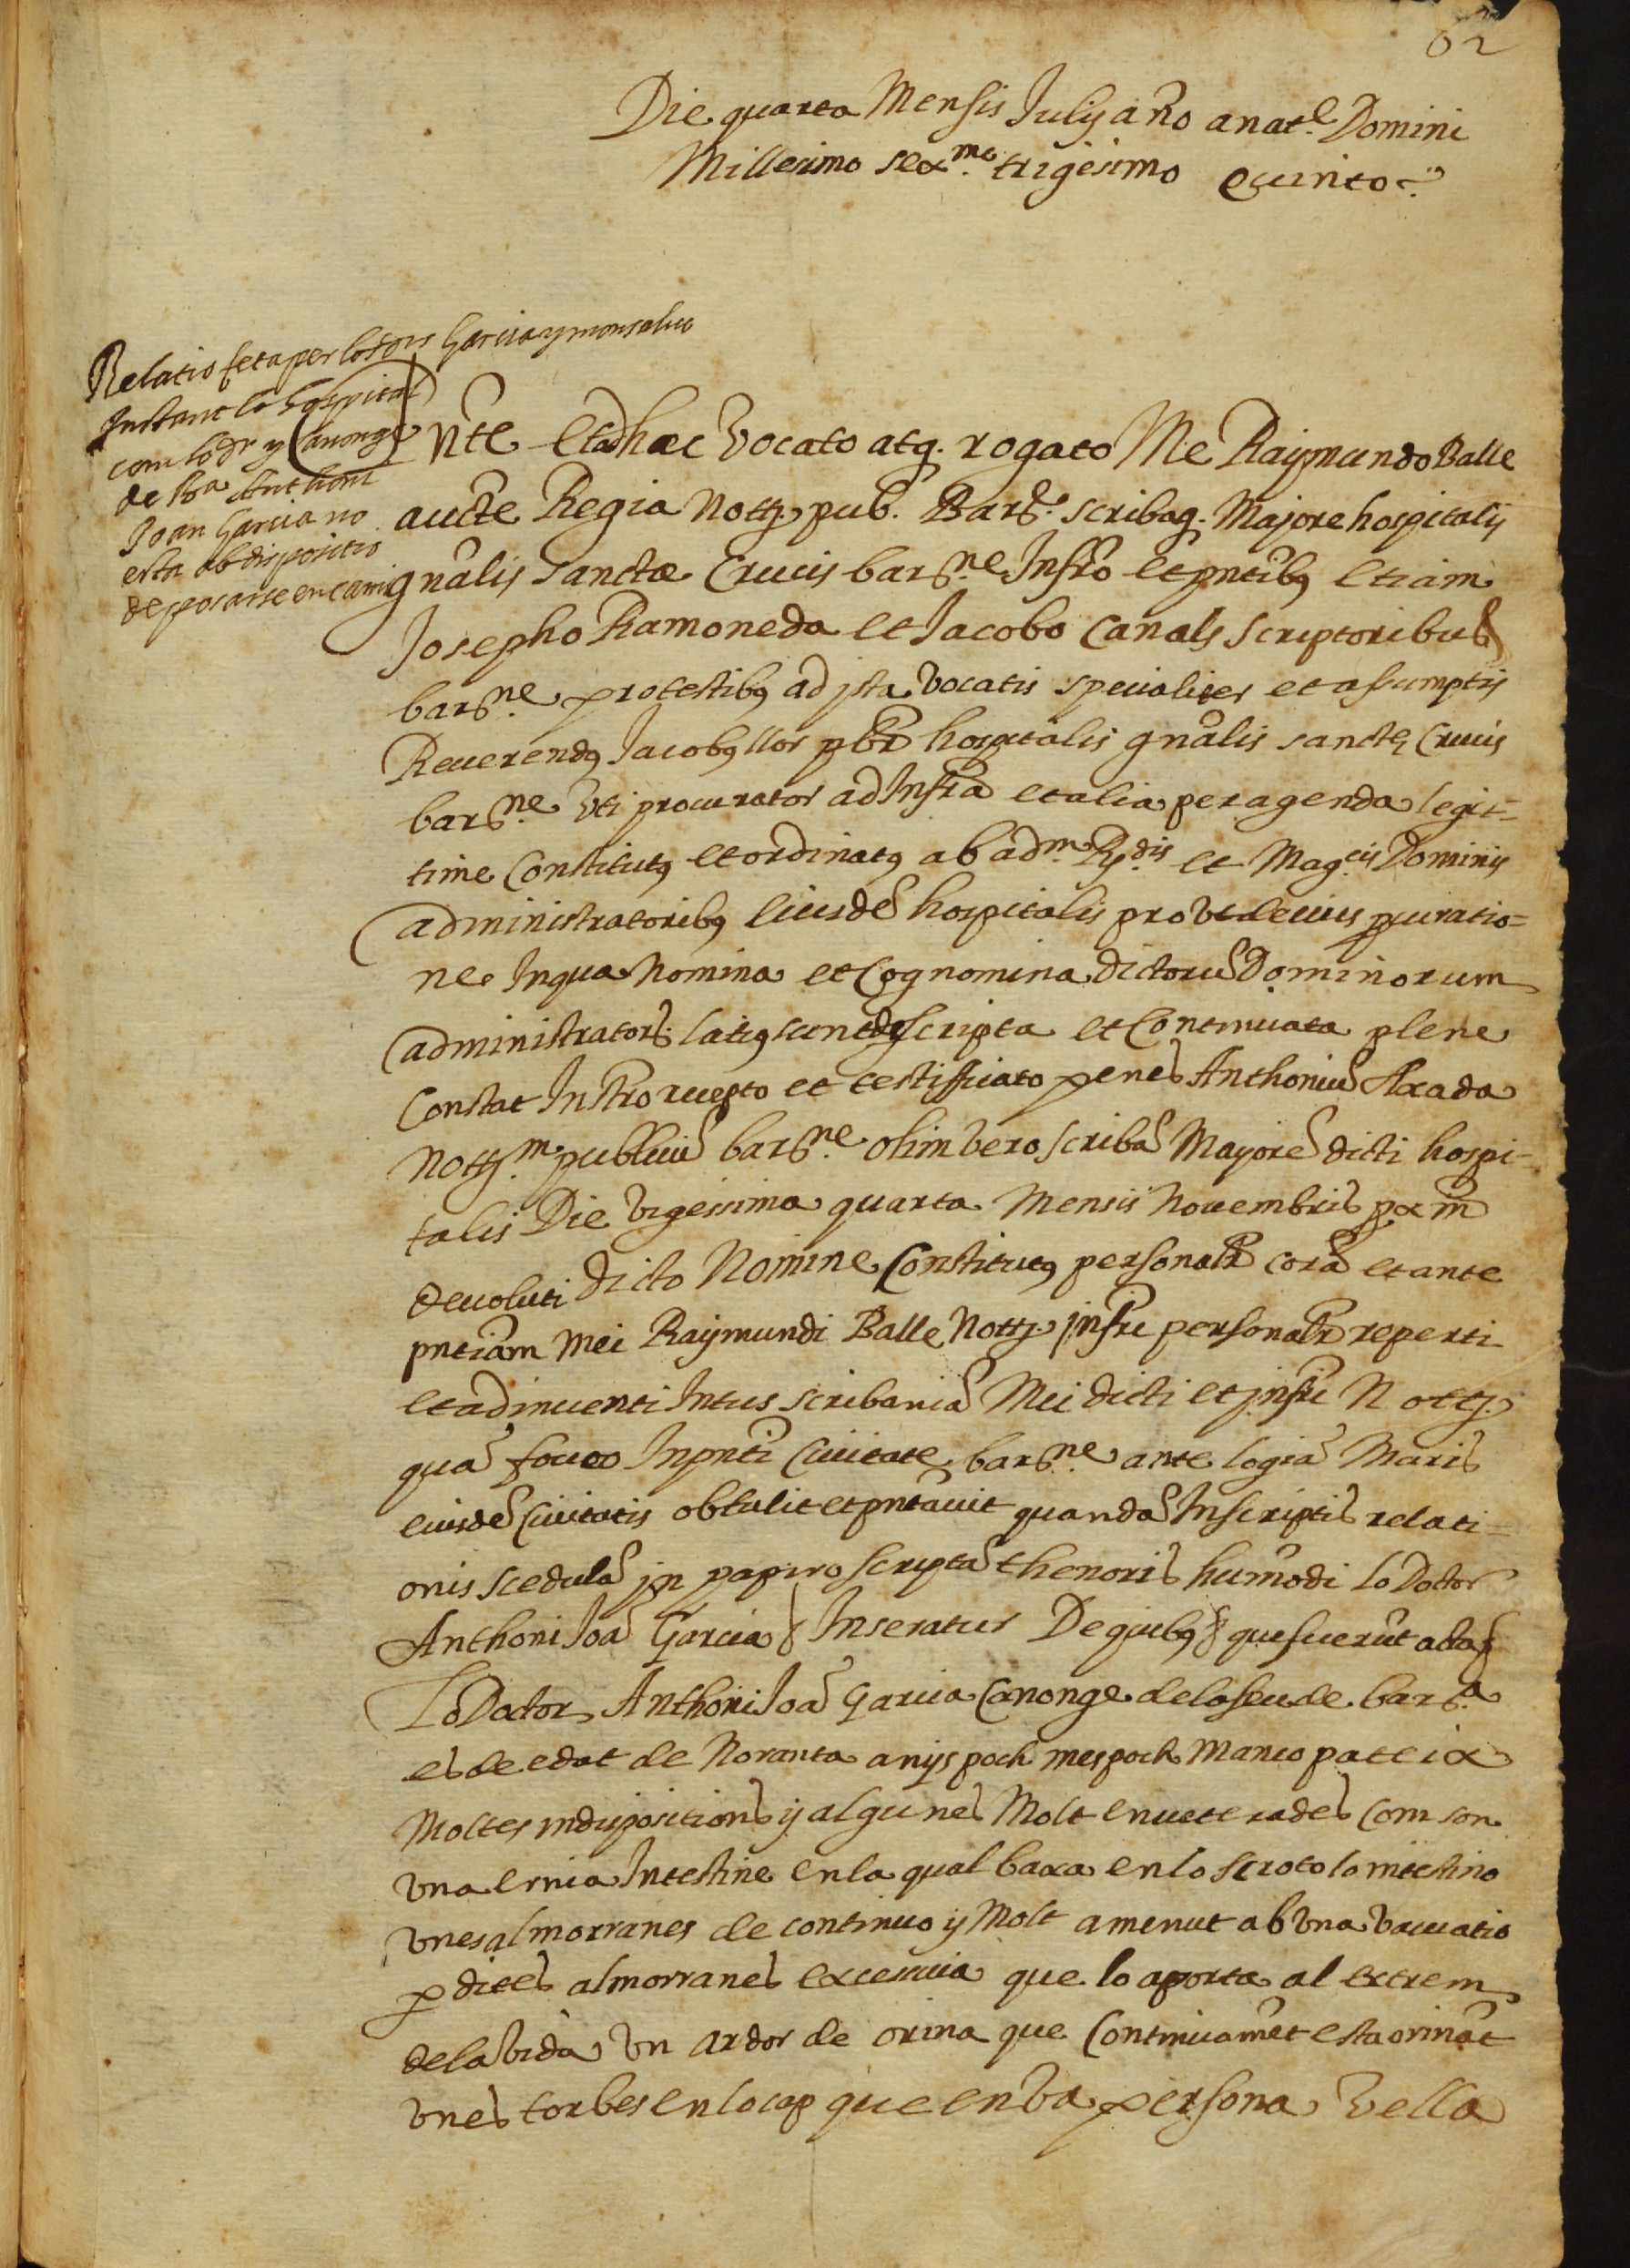 62
Die quarta Mensis Julij año a nat.e Domini
Millesimo sex.mo trigesimo Quinto
Relatio feta per los Drs Garcia y monsalvo
Instant lo hospital
com lo Dr y Canonge
de Bna Anthoni
Joan Garcia no
esta ab dispositio
de posarse en cami
Nte Et ad hæc Vocato atq. rogato Me Raymundo Balle
aucte Regia Notrj. pub. Bar.e scribaq. Majore hospitalij
gnãlis Sanctæ Crucis barne. Infro et pntibq etiam
Josepho Ramoneda et Jacobo Canals scriptoribus
barne. pro testibq ad ista vocatis specialiter et assumptis
Reverendq Jacobq llor pbr hospitalis gnãlis sancte Crucis
barne. Uti procurator ad Infra et alia peragenda legit=
time Constitutq et ordinatq ab adm. Rdis. et Magcis. Dominijs
administratoribq eiusde hospitalis prout de eius pcuratio=
ne In qua Nomina et Cognomina dictoru Dominorum
administrators. latiq sunt descripta et Continuata plene
Constat Instro recepto et testifficato penes Anthoniu Axada
Nottm. publicu barne. olim vero scriba Majore dicti hospi-
talis Die vigessima quarta Mensis Novembris pxm
devoluti dicto Nomine Constitutq personalr cora et ante
pntiam Mei Raymundi Balle Nottj. infri personalr reperti
et adinventi Intus scribania Mei dicti et infri Nottj.
qua foveo In pnti Civitate barne. ante logia Maris
eiusde Civitatis obtulit et pntavit quanda Inscriptis relati=
onis scedula in papiro scripta thenoris humodi lo Doctor
Anthoni Joa Garcia & Inseratur De quibq & que fuerut acta &
Lo Doctor Anthoni Joa Garcia Canonge de la seu de bar.a
es de edat de Noranta anys poch mes poch Manco pateix
Moltes indispositions y algunes Molt enveterades Com son
Una ernia Intestine en la qual baxa en lo scroto lo intestino
Unes almorranes de continuo y Molt amenut ab Una vacuatio
p dites almorranes excessiva que lo aporta al extrem
de la vida Un ardor de orina que Continuamet esta orinat
Unes torbes en lo cap que en Va persona Vella